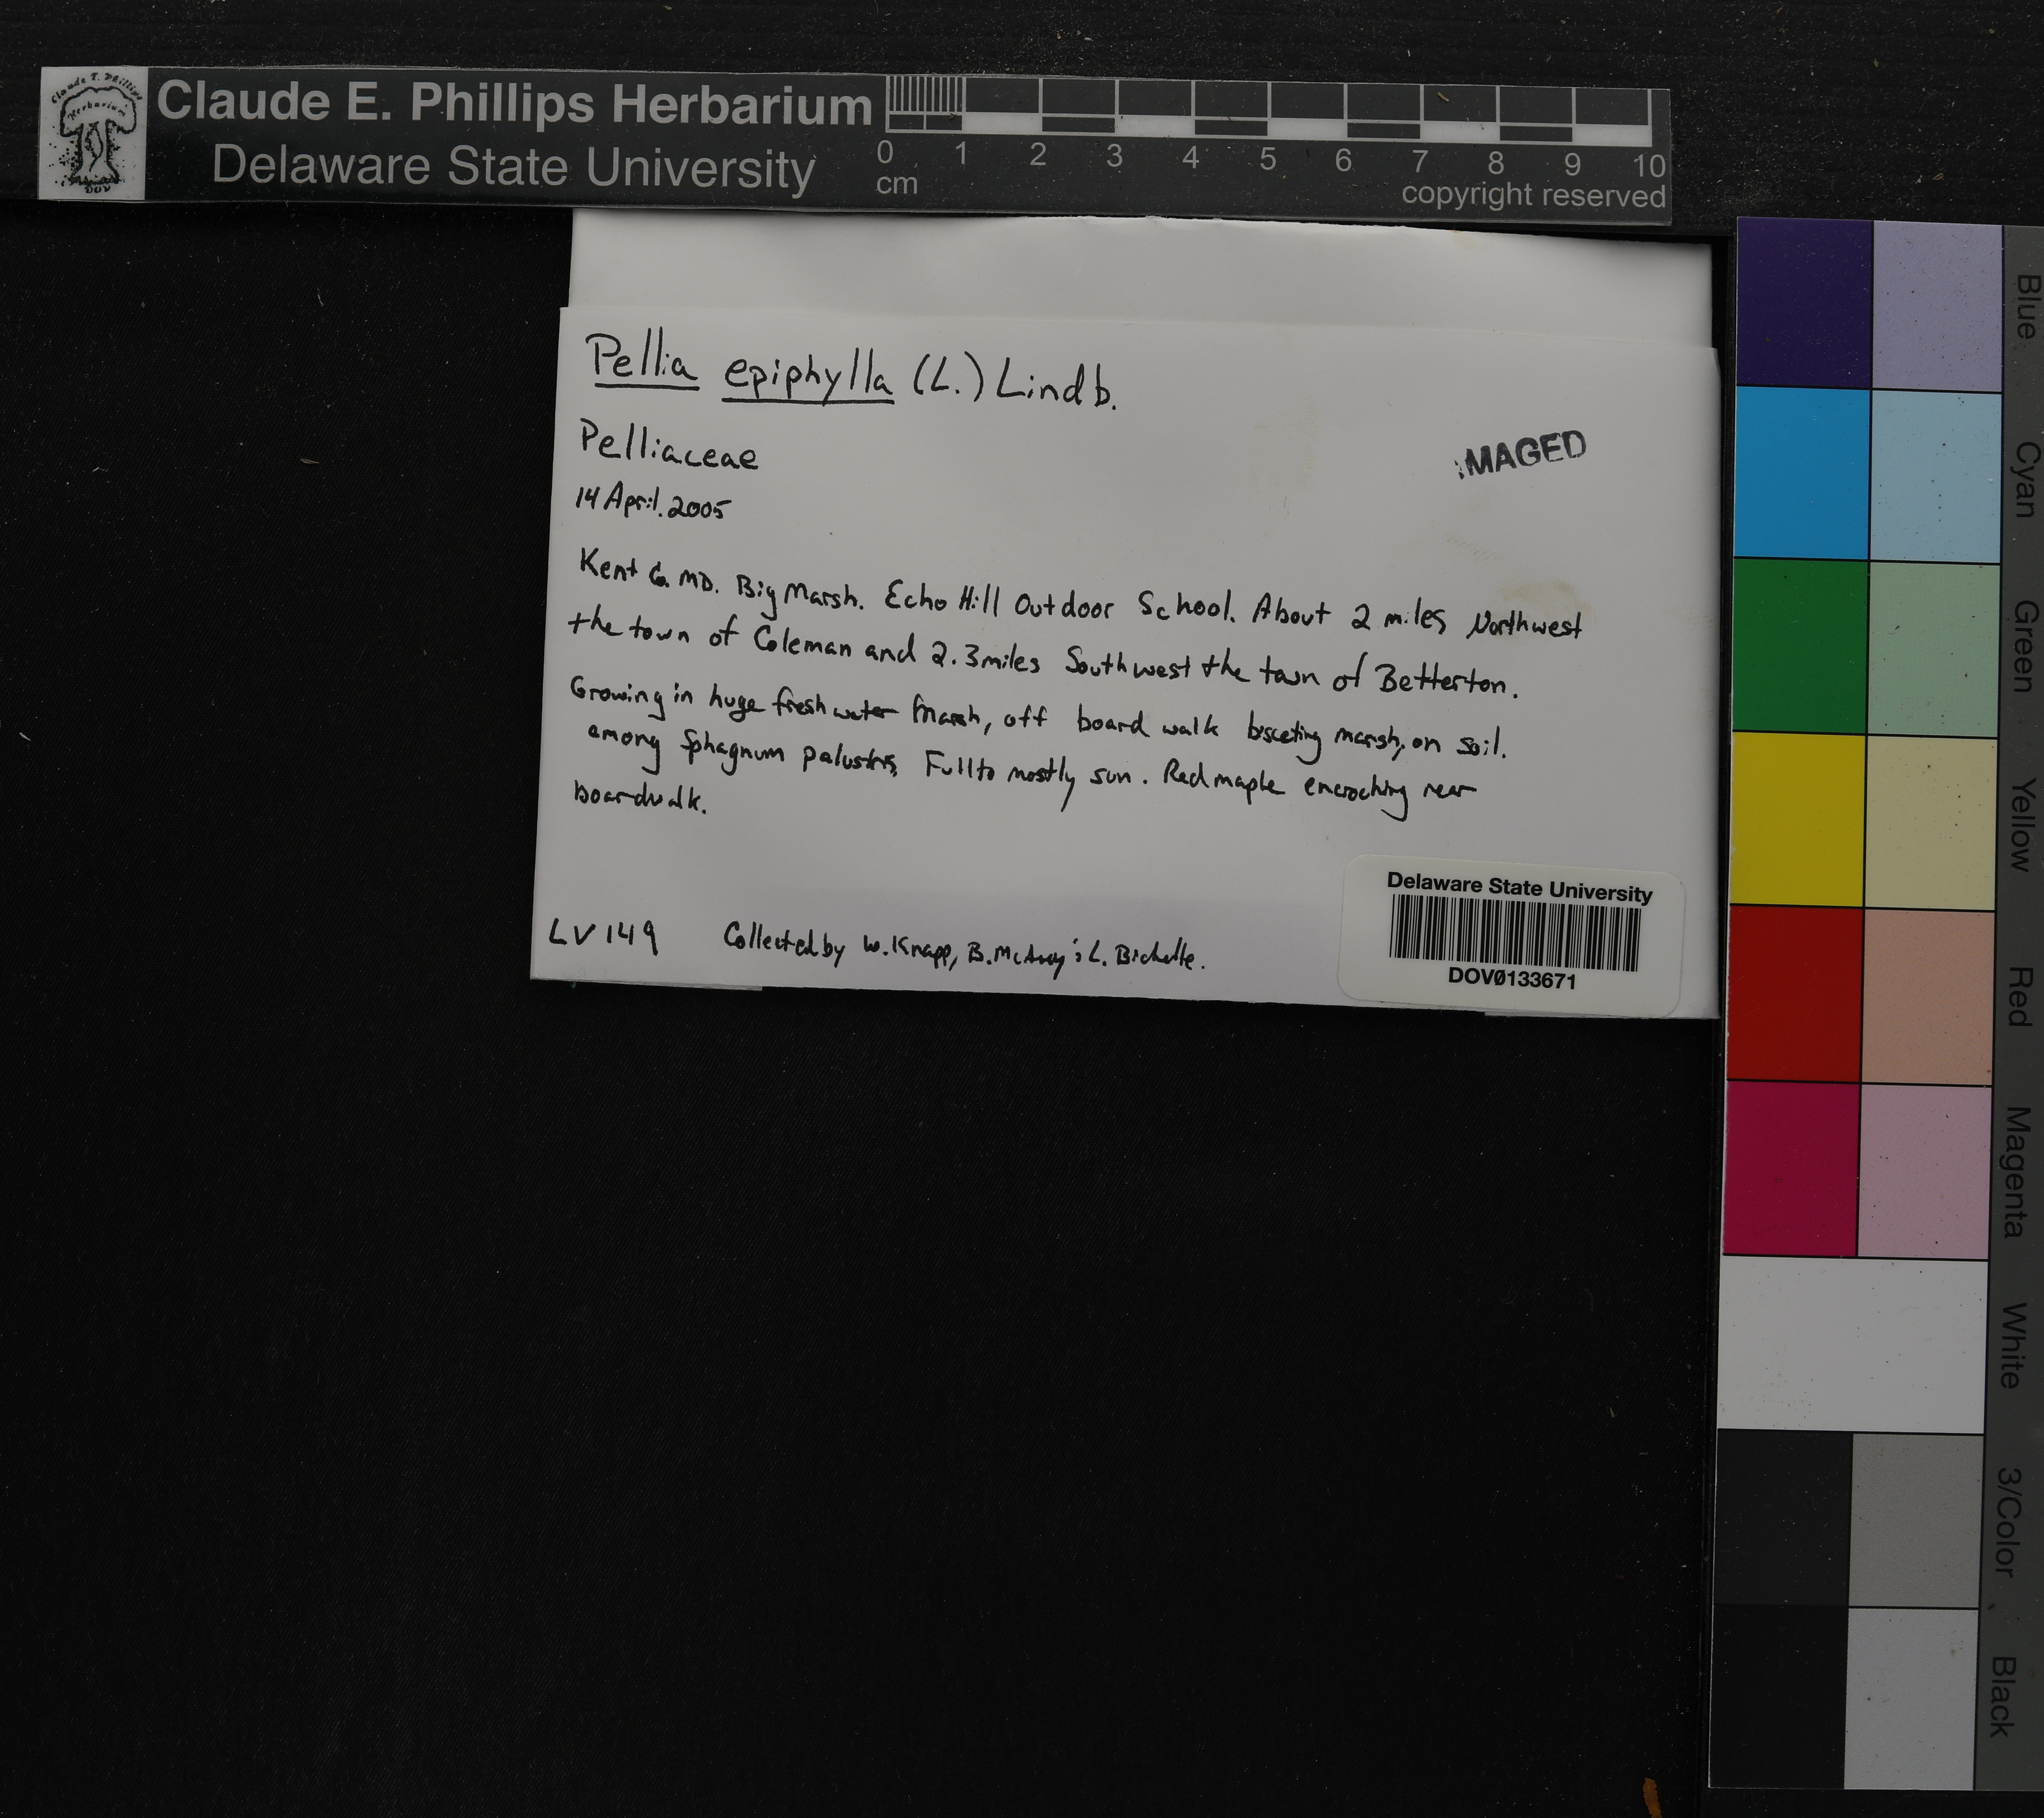 Claude E. Phillips Herbarium
Delaware State University
Claude E. Phillips Herbarium
DOV
0 1 2 3 4 5 6 7 8 9 10
cm
copyright reserved
Pellia epiphylla (L.) Lindb.
Pelliaceae
14 April. 2005
IMAGED
Kent Co. MD. Big Marsh. Echo Hill Outdoor School. About 2 miles Northwest
the town of Coleman and 2.3 miles Southwest the town of Betterton.
Growing in huge fresh water marsh, off board walk bisceting marsh, on soil.
among Sphagnum palustris, Full to mostly sun. Red maple encroching near
boardwalk.
LV 149 Collected by W. Knapp, B. McAvoy L.
Delaware State University
DOV0133671
Blue
Cyan
Green
Yellow
Red
Magenta
White
3/Color
Black